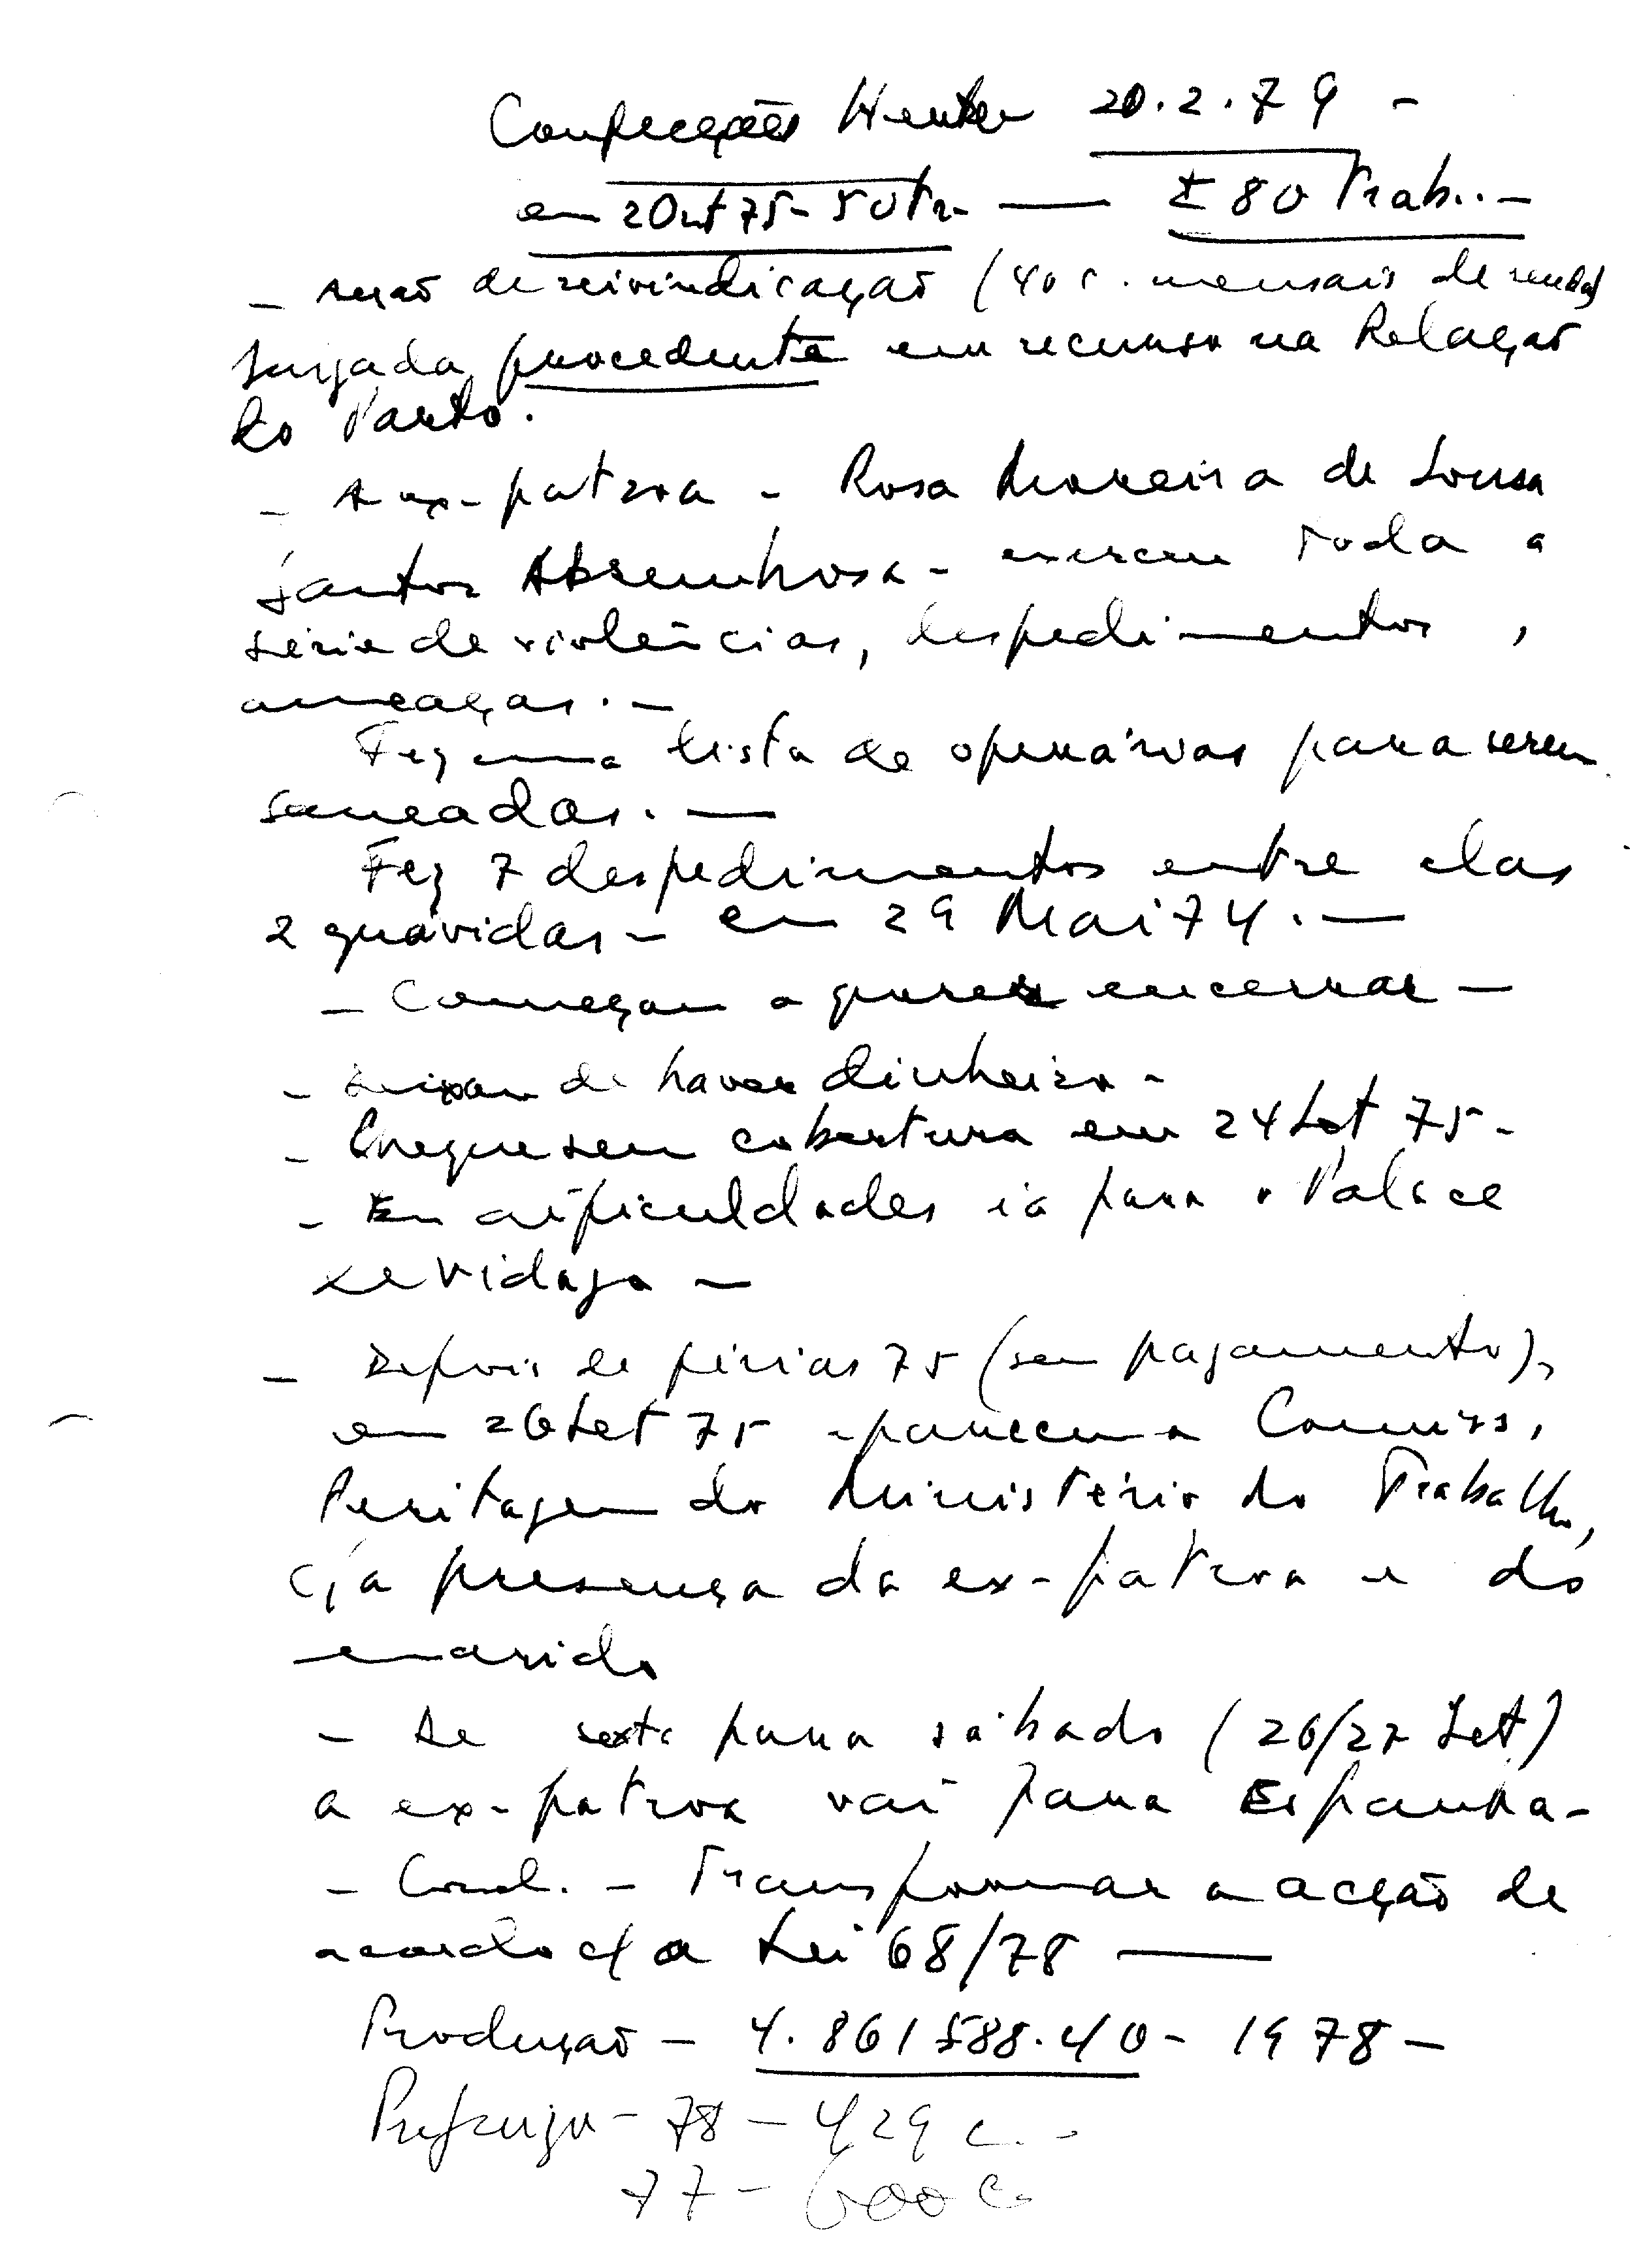 Confecções 20.2.79 -
em 2 Out 75 - 50 Tr. — ± 80 Trab.. -
- Acção de reivindicação (40 c. mensais de renda)
julgada procedente em recurso na Relação
do Porto.
- A ex-patroa - Rosa Moreira de Sousa
Santos - exerceu toda a
série de violências, despedimentos,
ameaças. -
Fez uma lista de operárias para serem
saneadas. —
Fez 7 despedimentos entre elas
2 grávidas - em 29 Mai 74. —
- Começou a querer encerrar -
- Deixou de haver dinheiro -
- Cheque sem cobertura em 24 Set 75 -
- Em dificuldades ia para o Palace
de Vidago -
- Depois de férias 75 (sem pagamento),
em 26 Set 75 apareceu a Comiss.
Peritagem do Ministério do Trabalho,
c/ a presença da ex-patroa e do
marido
- De sexta para sábado (26/27 Set)
a ex-patroa vai para Espanha -
- Cond. - Transformar a acção de
acordo c/ a Lei 68/78 —
Produção - 4.861588.40 - 1978 -
Prejuizo - 78 - 429 c. -
77 - 600 c.